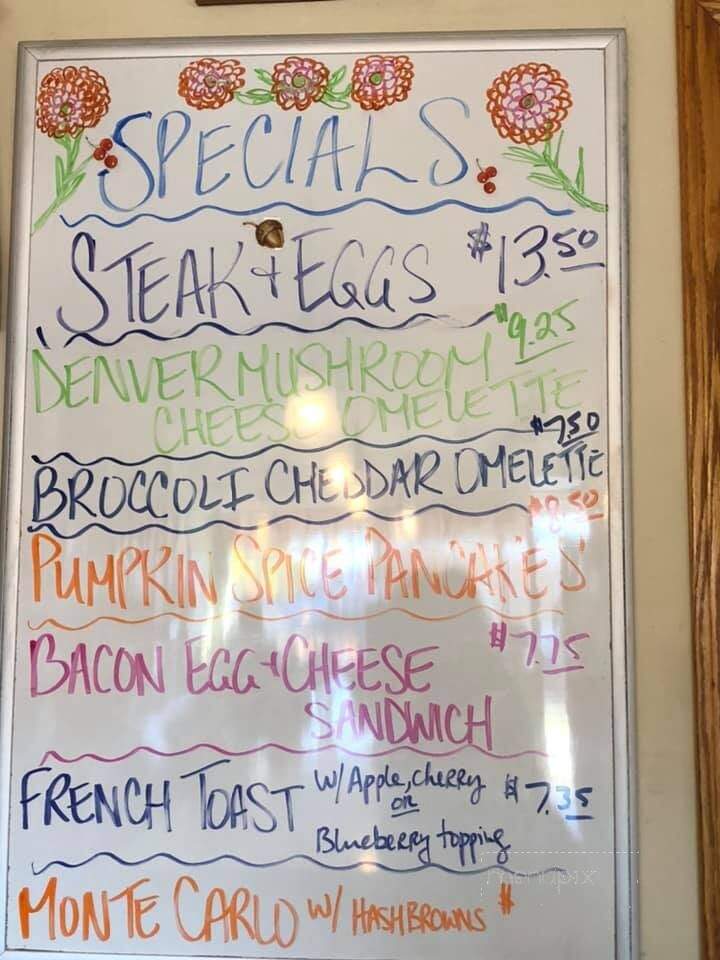 SPECIALS
STEAK + EGGS $13.50
DENVER MUSHROOM $9.25
CHEESE OMELETTE
$7.50
BROCCOLI CHEDDAR OMELETTE
$8.50
PUMPKIN SPICE PANCAKES
BACON EGG + CHEESE $7.75
SANDWICH
FRENCH TOAST w/ Apple, cherry $7.35
or
Blueberry topping
MONTE CARLO w/ HASHBROWNS $
menupix